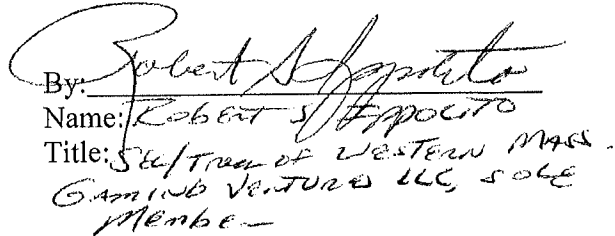 By: Robert S Ippolito
Name: ROBERT S IPPOLITO
Title: SEC/Treas of WESTERN MASS.
GAMING VENTURES LLC, SOLE
Member